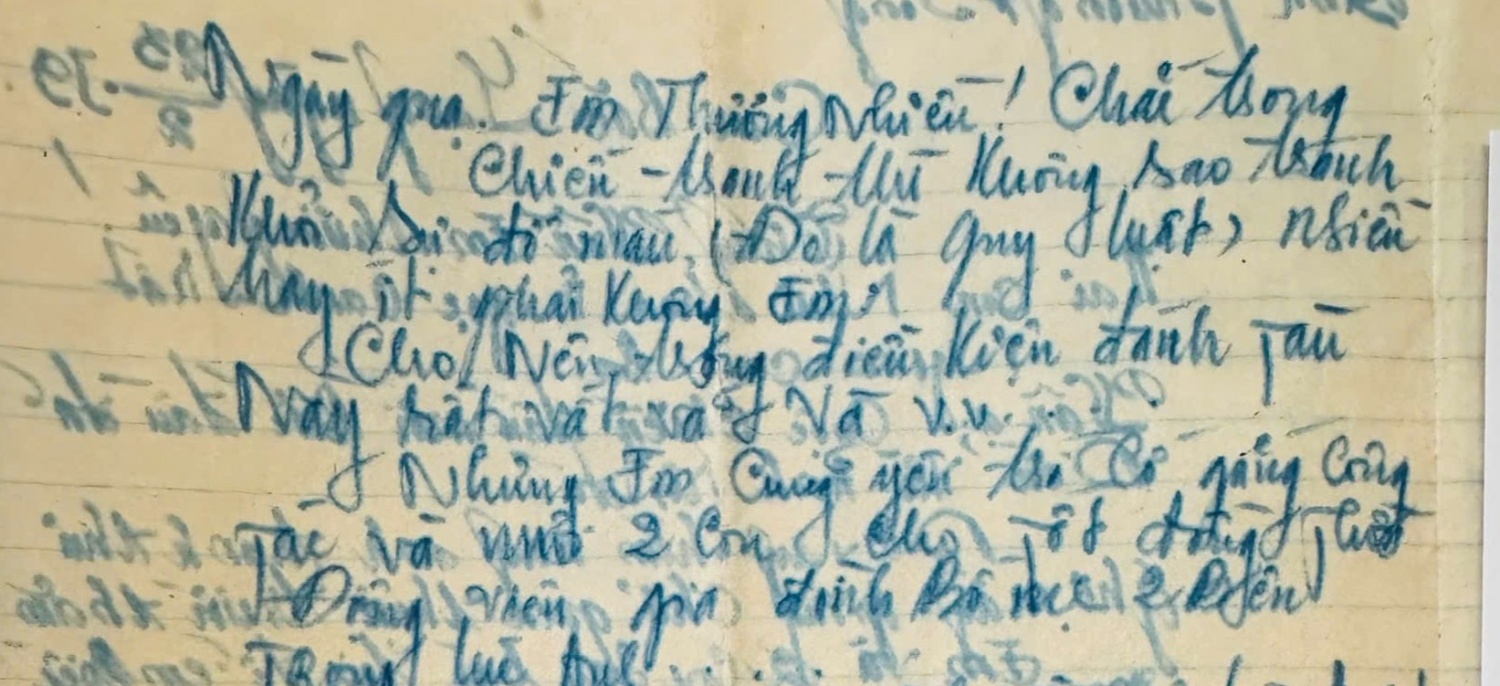 Ngày qua. Em Thương Nhiều! Chắc trong
Chiến - tranh thì Không sao tránh
Khỏi Sự đổ máu, (Đó là quy luật) nhiều
hay ít phải Không Em.
Cho Nên trong điều Kiện đánh Tàu
Này rất vất vả và v.v.
Nhưng Em Cũng yên trí Cố gắng Công
Tác và nuôi 2 Con Cho Tốt đồng Thời
Động viên gia đình Bố mẹ 2 Bên
Trong lúc Anh